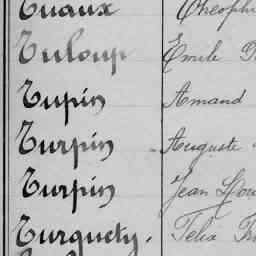 Tuaux Théophi
Tuloup Emile
Tupin Amand
Turpin Auguste
Turpin Jean Lou
Turquety. Félix